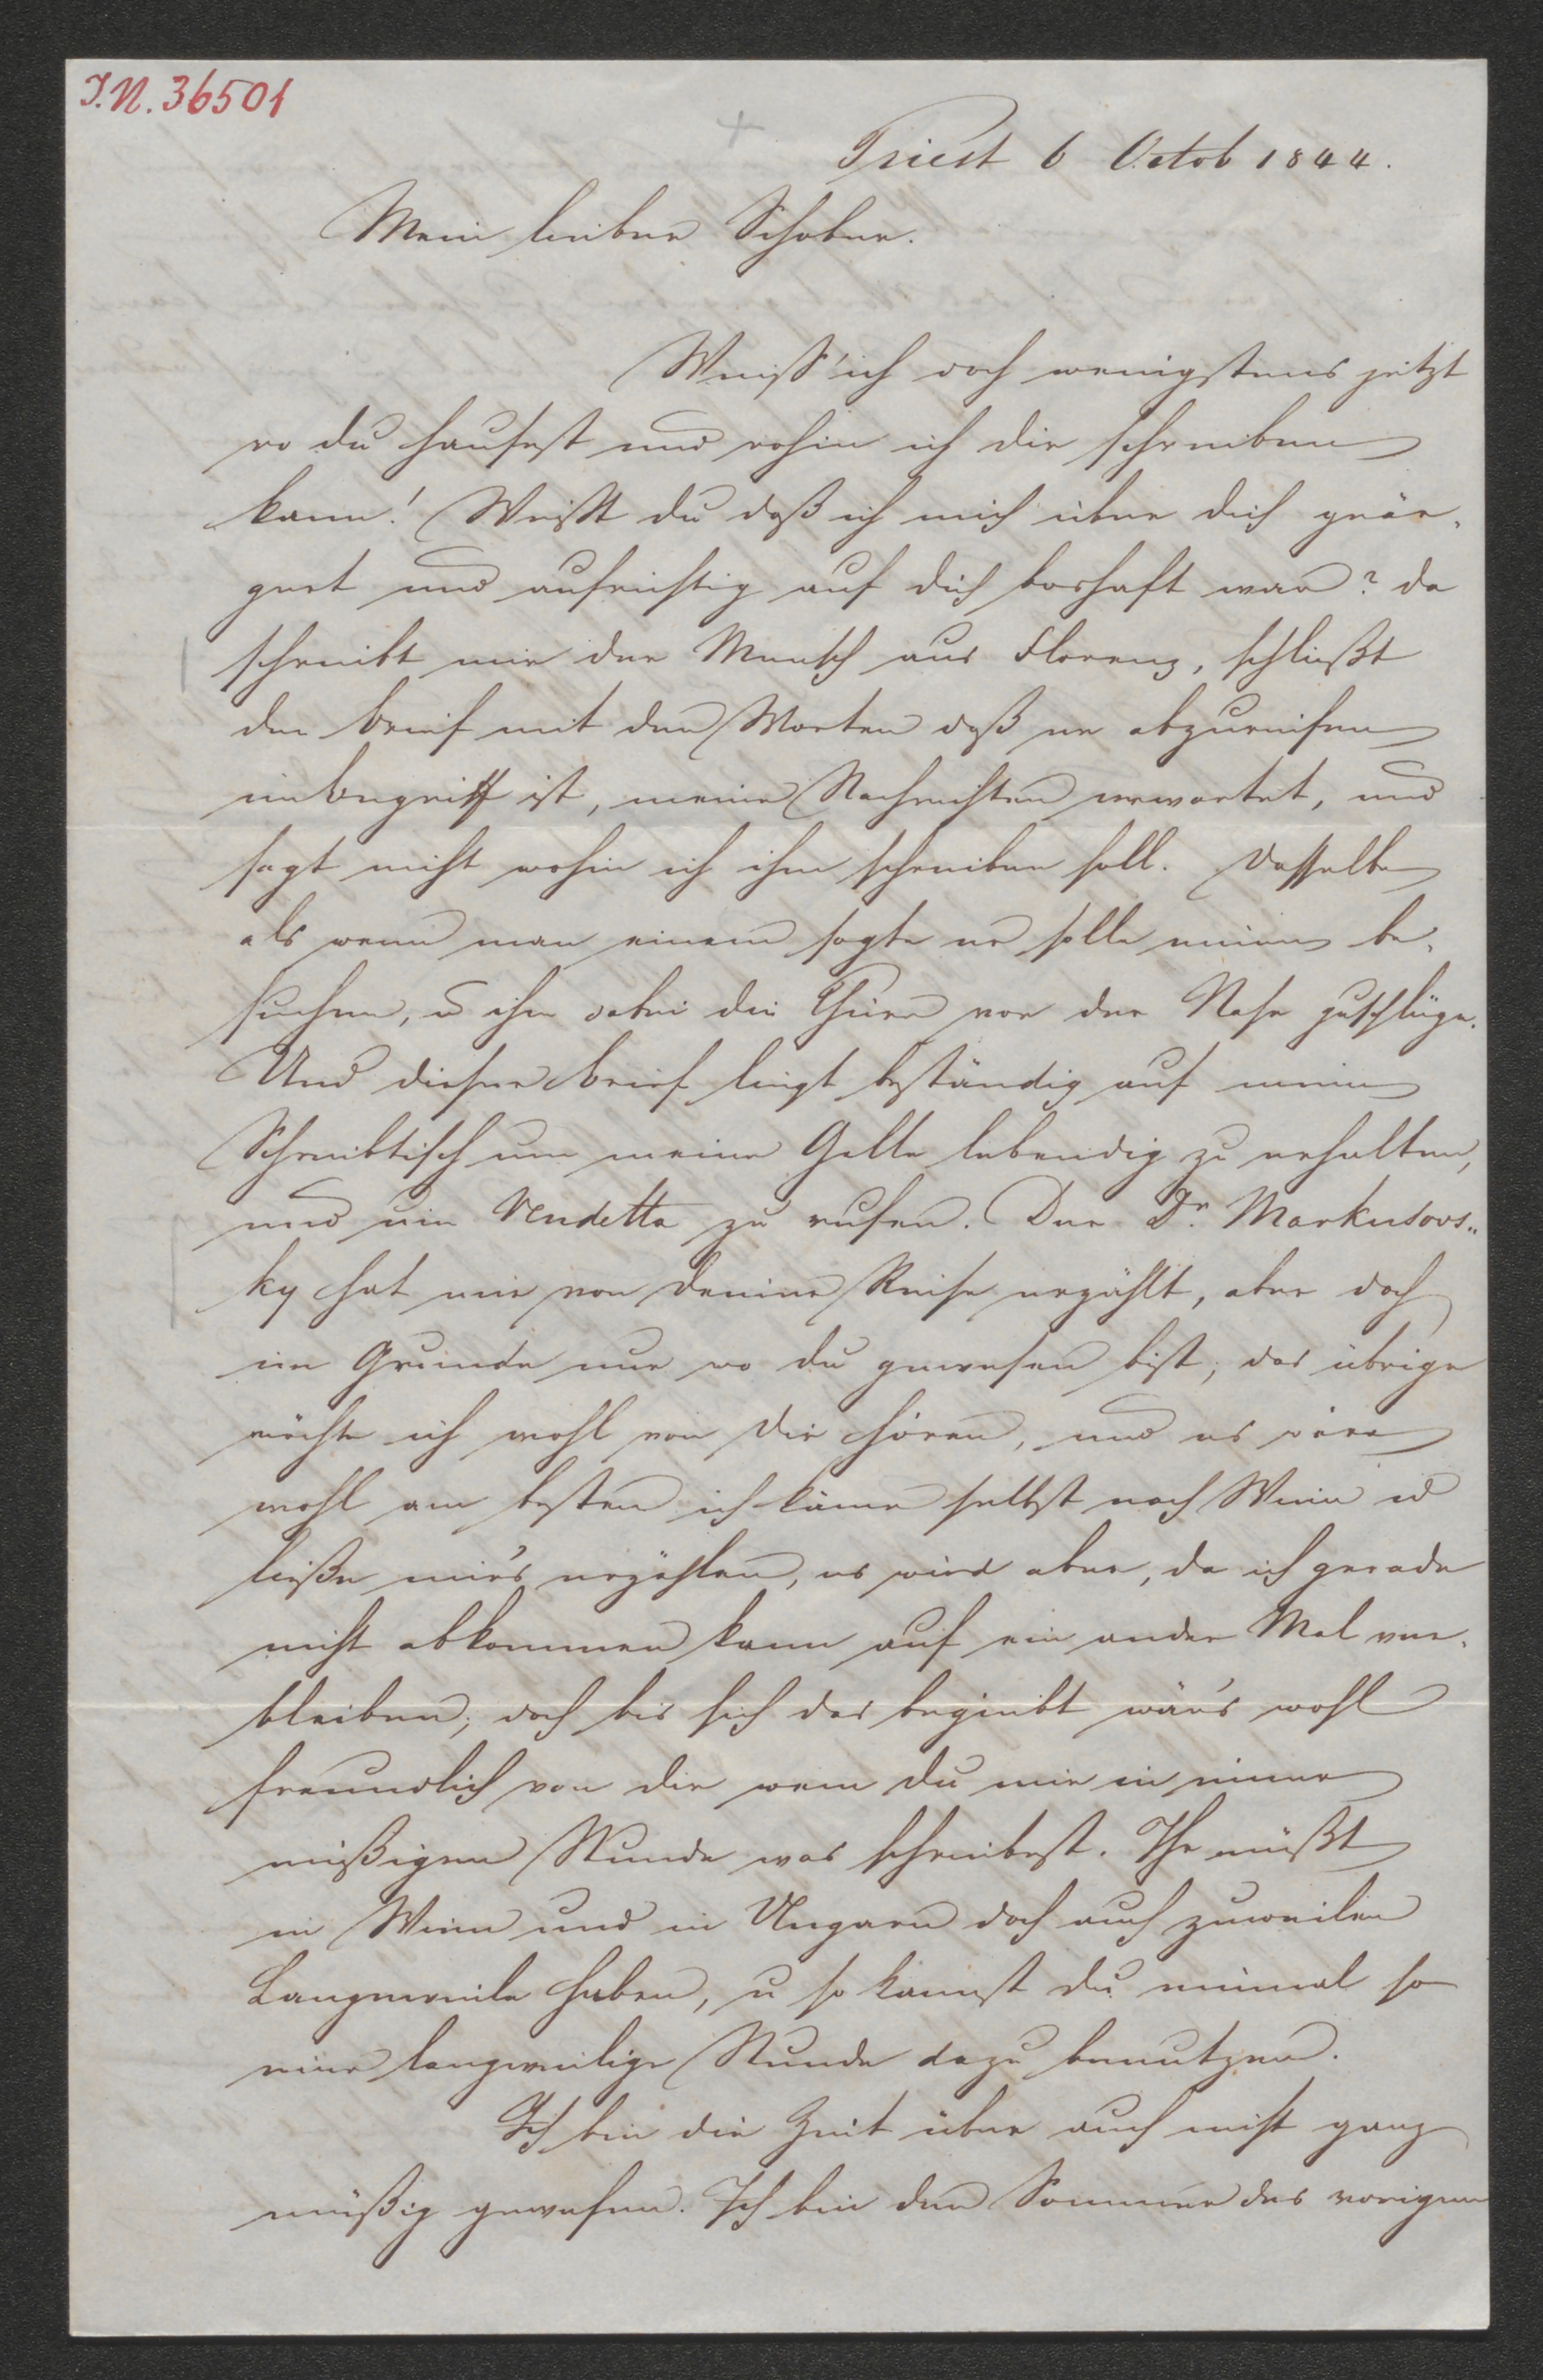 I.N. 36501
Triest 6 Octob 1844.
Mein lieber Schober.
Weiss' ich doch wenigstens jetzt
wo du hausest und wohin ich dir schreiben
kann! Weisst du daß ich mich über dich geär-
gert und aufrichtig auf dich boshaft war? da
schreibt mir der Mensch aus Florenz, schließt
den Brief mit den Worten daß er abzureisen
im Begriff ist, meine Nachrichten erwartet, und
sagt nicht wohin ich ihm schreiben soll. Dasselbe
als wenn man einem sagte er solle einen be-
suchen, u ihm dabei die Thüre vor der Nase zuschlüge.
Und dieser Brief liegt beständig auf mein
Schreibtisch um meine Galle lebendig zu erhalten,
und um Vendetta zu rufen. Der Dr. Markusovs-
ky hat mir von deiner Reise erzählt, aber doch
im Grunde nur wo du gewesen bist, das übrige
möchte ich wohl von dir hören, und es wäre
wohl am besten ich käme selbst nach Wien u
ließe mir's erzählen, es wird aber, da ich gerade
nicht abkommen kann auf ein ander Mal ver-
bleiben; doch bis sich das begiebt wär's wohl
freundlich von dir wenn du mir in einer
müßigen Stunde was schreibest. Ihr müßt
in Wien und in Ungarn doch auch zuweilen
Langeweile haben, u so kannst du einmal so
eine langweilige Stunde dazu benutzen.
Ich bin die Zeit über auch nicht ganz
müßig gewesen. Ich bin den Sommer des vorigen